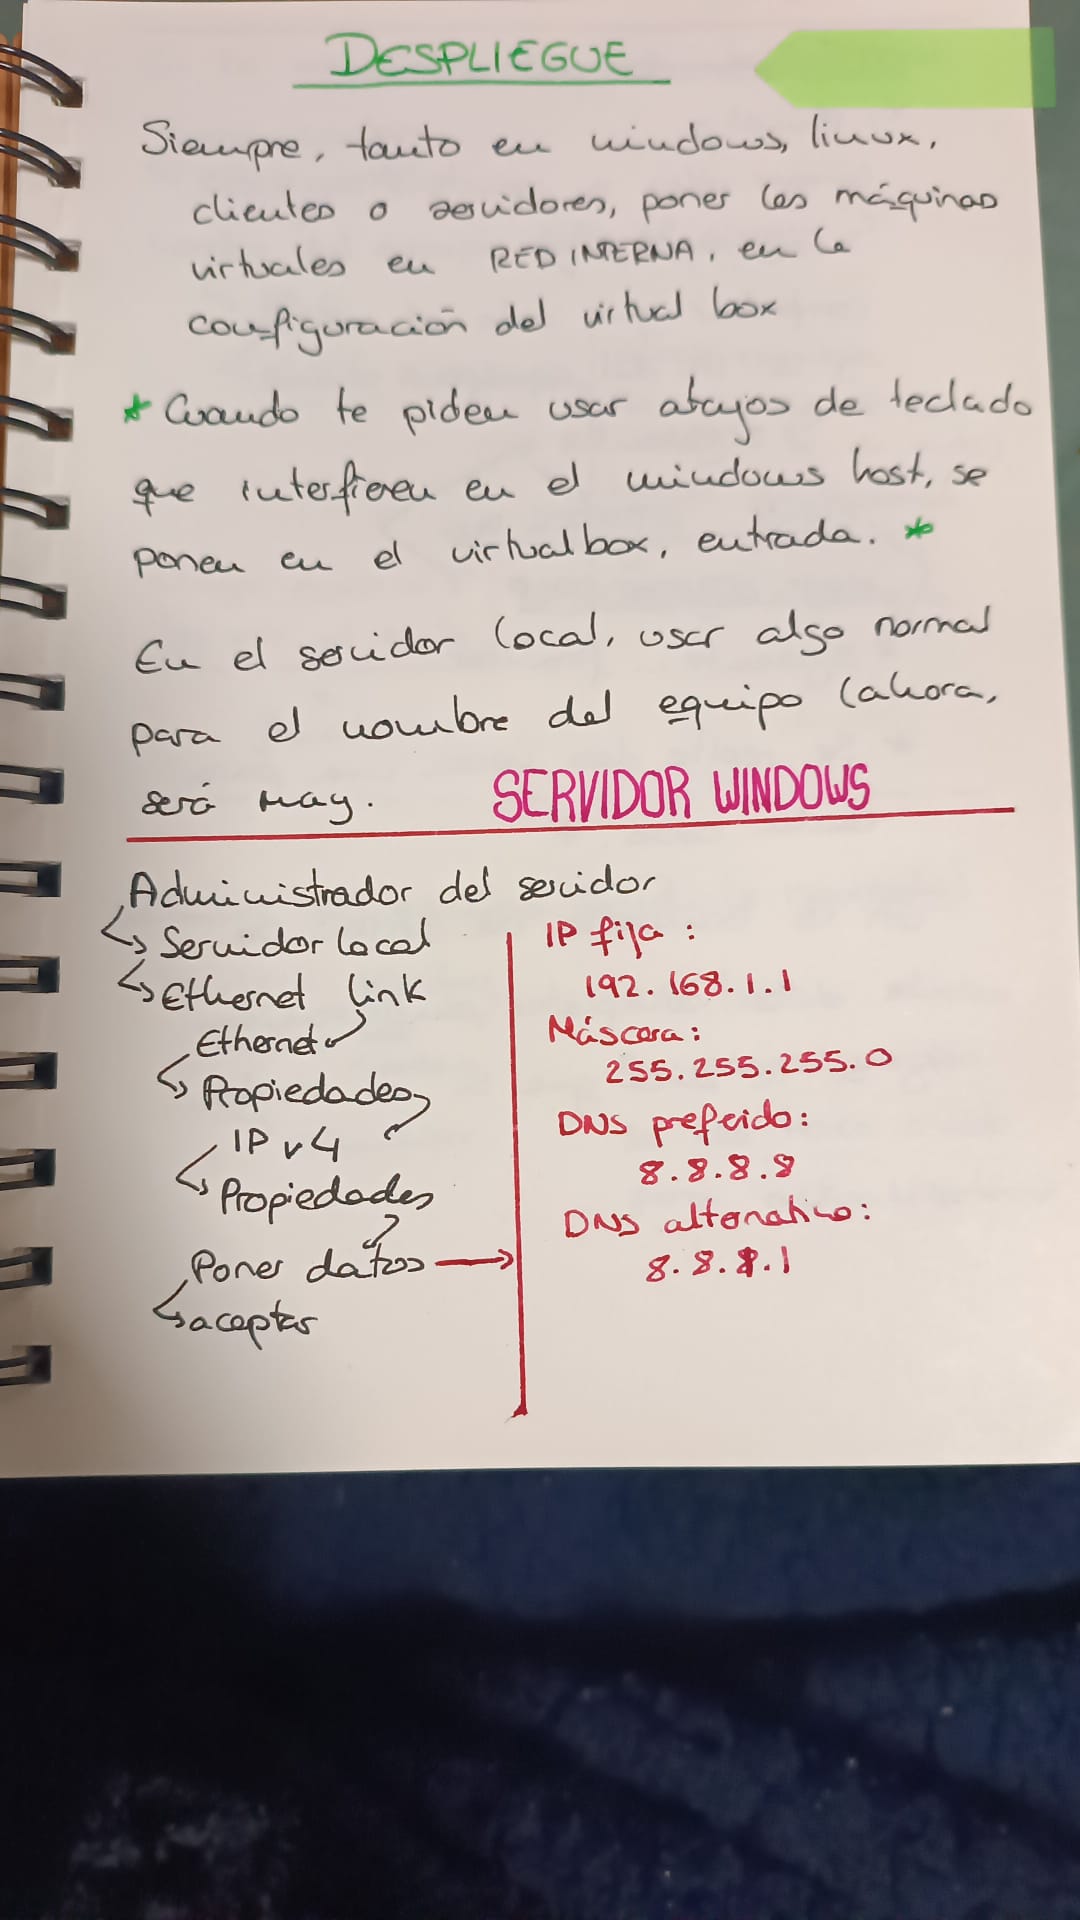 DESPLIEGUE
Siempre, tanto en windows, linux,
clientes o servidores, poner las máquinas
virtuales en RED INTERNA, en la
configuración del virtual box
* Cuando te piden usar atajos de teclado
que interfieren en el windows host, se
ponen en el virtualbox, entrada. *
En el servidor local, usar algo normal
para el nombre del equipo (ahora,
será May.
SERVIDOR WINDOWS
Administrador del servidor
↳ Servidor local
↳ Ethernet link
Ethernet
↳ Propiedades
IP v4
↳ Propiedades
Poner datos →
↳ aceptar
IP fija:
192.168.1.1
Máscara:
255.255.255.0
DNS preferido:
8.8.8.8
DNS alternativo:
8.8.8.1